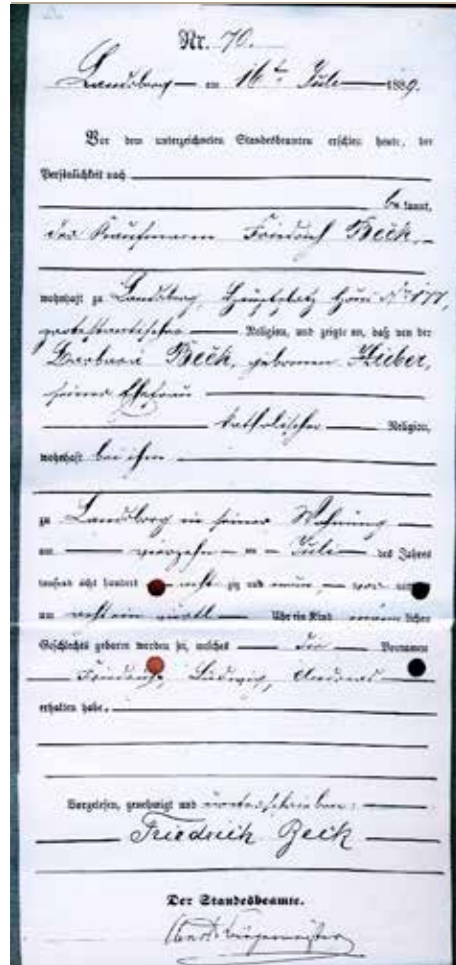 Nr. 70.
Landsberg am 16ten Juli 1889.
Vor dem unterzeichneten Standesbeamten erschien heute, der
Persönlichkeit nach
be kannt,
der Kaufmann Friedrich Beck,
wohnhaft zu Landsberg, Hauptplatz Haus No 177,
protestantischer Religion, und zeigte an, daß von der
Barbara Beck, gebornen Hieber,
seiner Ehefrau
katholischer Religion,
wohnhaft bei ihm
zu Landsberg in seiner Wohnung
am vierzehn ten Juli des Jahres
tausend acht hundert acht zig und neun,
um acht ein viertl Uhr ein Kind männ liches
Geschlechts geboren worden sei, welches die Vornamen
Friedrich, Ludwig, Andreas
erhalten habe.
Vorgelesen, genehmigt und unterschrieben:
Friedrich Beck
Der Standesbeamte.
Bürgermeister